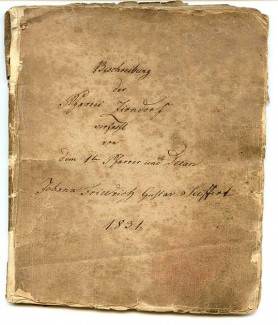 Beschreibung
der
Pfarrei Zirndorf
verfaßt
von
dem 1ten Pfarrer und Decan
Johann Friedrich Gustav Seiffert
1831.